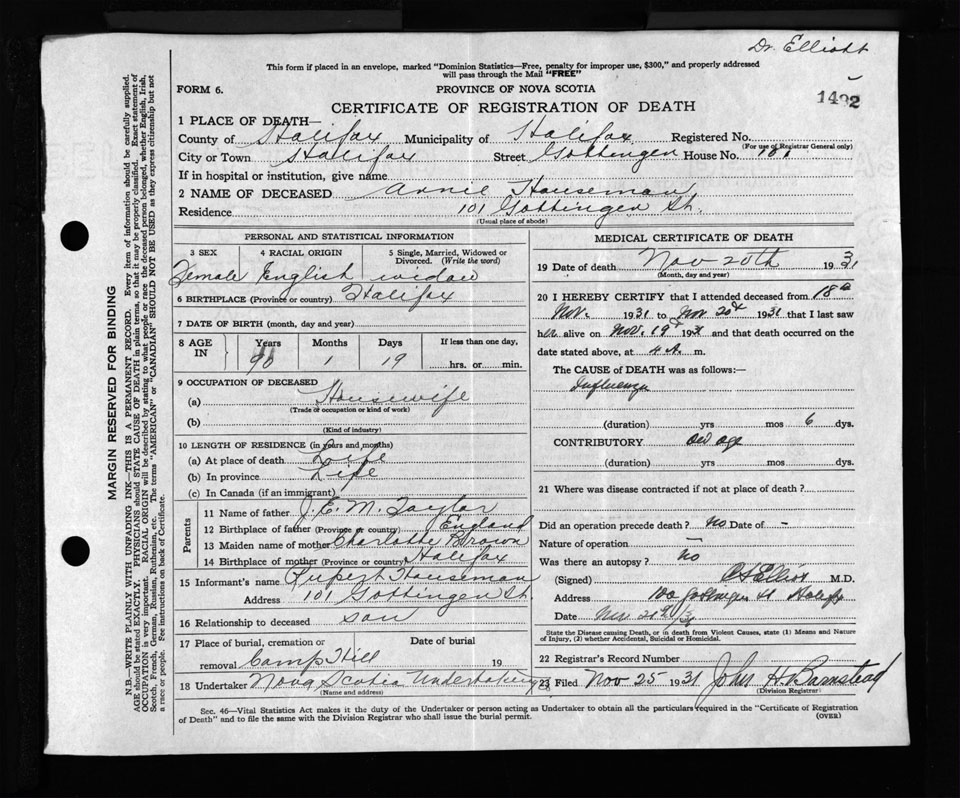 Dr. Elliott
This form if placed in an envelope, marked "Dominion Statistics—Free, penalty for improper use, $300," and properly addressed
will pass through the Mail "FREE"
FORM 6.
PROVINCE OF NOVA SCOTIA
1492
CERTIFICATE OF REGISTRATION OF DEATH
1 PLACE OF DEATH—
County of Halifax Municipality of Halifax Registered No.
(For use of Registrar General only)
City or Town Halifax Street Gottingen House No. 101
If in hospital or institution, give name
2 NAME OF DECEASED Annie Houseman
Residence 101 Gottingen St.
(Usual place of abode)
MARGIN RESERVED FOR BINDING
N.B.—WRITE PLAINLY WITH UNFADING INK—THIS IS A PERMANENT RECORD. Every item of information should be carefully supplied.
AGE should be stated EXACTLY. PHYSICIANS should STATE CAUSE OF DEATH in plain terms, so that it may be properly classified. Exact statement of
OCCUPATION is very important. RACIAL ORIGIN will be described by stating to what people or race the deceased person belonged, whether English, Irish,
Scotch, French, German, Russian, Ruthenian, etc. The terms "AMERICAN" or "CANADIAN" SHOULD NOT BE USED as they express citizenship but not
a race or people. See instructions on back of Certificate.
PERSONAL AND STATISTICAL INFORMATION
3 SEX
4 RACIAL ORIGIN
5 Single, Married, Widowed or
Divorced. (Write the word)
Female English widow
6 BIRTHPLACE (Province or country) Halifax
7 DATE OF BIRTH (month, day and year)
8 AGE IN Years Months Days If less than one day,
90 1 19 hrs. or min.
9 OCCUPATION OF DECEASED
(a) Housewife
(Trade or occupation or kind of work)
(b)
(Kind of industry)
10 LENGTH OF RESIDENCE (in years and months)
(a) At place of death Life
(b) In province Life
(c) In Canada (if an immigrant)
Parents
11 Name of father J. E. M. Taylor
12 Birthplace of father (Province or country) England
13 Maiden name of mother Charlotte Brown
14 Birthplace of mother (Province or country) Halifax
15 Informant's name Rupert Houseman
Address 101 Gottingen St
16 Relationship to deceased son
17 Place of burial, cremation or Date of burial
removal Camp Hill 19
18 Undertaker Nova Scotia Undertaking
(Name and address)
MEDICAL CERTIFICATE OF DEATH
19 Date of death Nov 20th 1931
(Month, day and year)
20 I HEREBY CERTIFY that I attended deceased from 18th
Nov. 1931 to Nov 20th 1931 that I last saw
her alive on Nov. 19th 1931 and that death occurred on the
date stated above, at 4 A. m.
The CAUSE of DEATH was as follows:—
Influenza
(duration) yrs mos 6 dys.
CONTRIBUTORY old age
(duration) yrs mos dys.
21 Where was disease contracted if not at place of death?
Did an operation precede death? no Date of -
Nature of operation -
Was there an autopsy? no
(Signed) Elliott M.D.
Address 100 Gottingen St Halifax
Date Nov. 20th/31
State the Disease causing Death, or in death from Violent Causes, state (1) Means and Nature
of Injury, (2) whether Accidental, Suicidal or Homicidal.
22 Registrar's Record Number
23 Filed Nov 25 1931 John H. Barnstead
(Division Registrar)
Sec. 46—Vital Statistics Act makes it the duty of the Undertaker or person acting as Undertaker to obtain all the particulars required in the "Certificate of Registration
of Death" and to file the same with the Division Registrar who shall issue the burial permit.
(OVER)